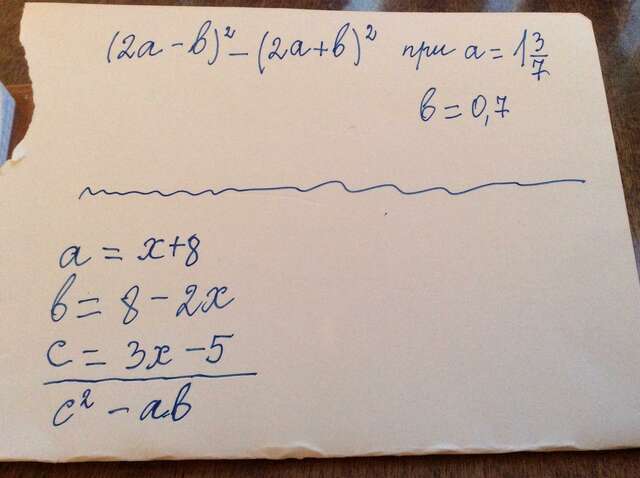 (2a-b)² - (2a+b)² при a = 1 3/7
b = 0,7
a = x+8
b = 8 - 2x
c = 3x - 5
c² - ab